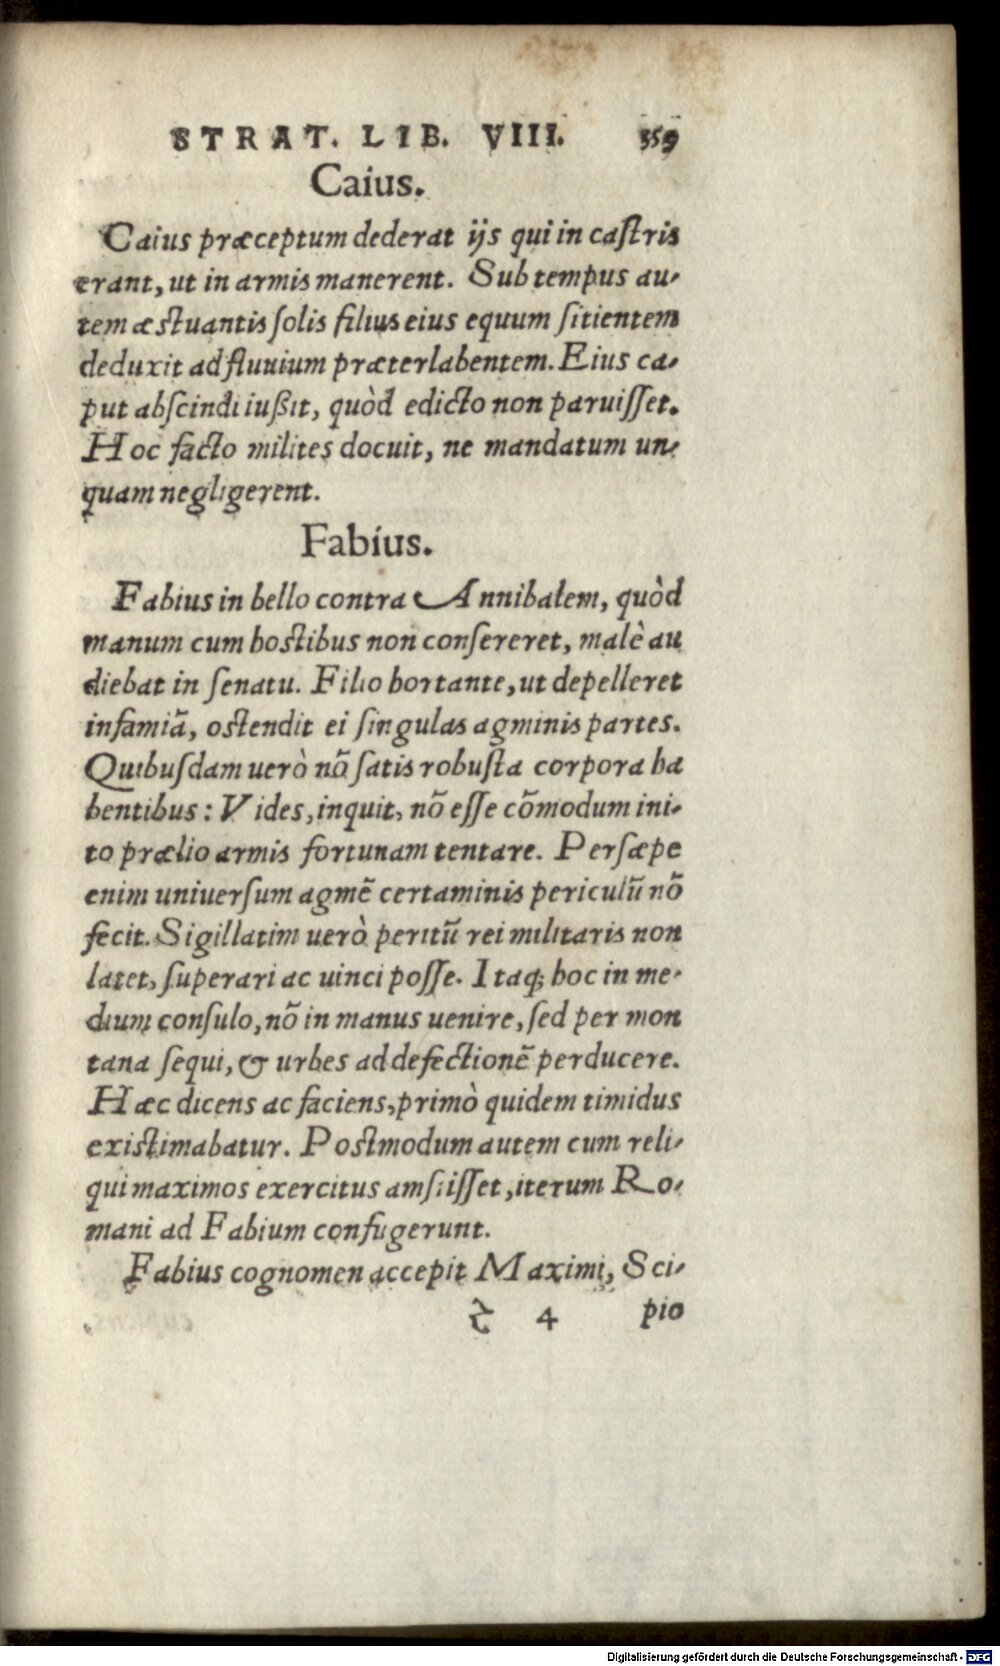 STRAT. LIB. VIII. 359
Caius.
Caius præceptum dederat ijs qui in castris
erant, ut in armis manerent. Sub tempus au-
tem æstuantis solis filius eius equum sitientem
deduxit ad fluuium præterlabentem. Eius ca-
put abscindi iußit, quòd edicto non paruisset.
Hoc facto milites docuit, ne mandatum un-
quam negligerent.
Fabius.
Fabius in bello contra Annibalem, quòd
manum cum hostibus non consereret, malè au
diebat in senatu. Filio hortante, ut depelleret
infamiã, ostendit ei singulas agminis partes.
Quibusdam uerò nõ satis robusta corpora ha
bentibus: Vides, inquit, nõ esse cõmodum ini-
to prælio armis fortunam tentare. Persæpe
enim uniuersum agmẽ certaminis periculũ nõ
fecit. Sigillatim uerò peritũ rei militaris non
latet, superari ac uinci posse. Itaq; hoc in me-
dium consulo, nõ in manus uenire, sed per mon
tana sequi, & urbes ad defectionẽ perducere.
Hæc dicens ac faciens, primò quidem timidus
existimabatur. Postmodum autem cum reli-
qui maximos exercitus amsiisset, iterum Ro-
mani ad Fabium confugerunt.
Fabius cognomen accepit Maximi, Sci-
Z 4 pio
Digitalisierung gefördert durch die Deutsche Forschungsgemeinschaft - DFG